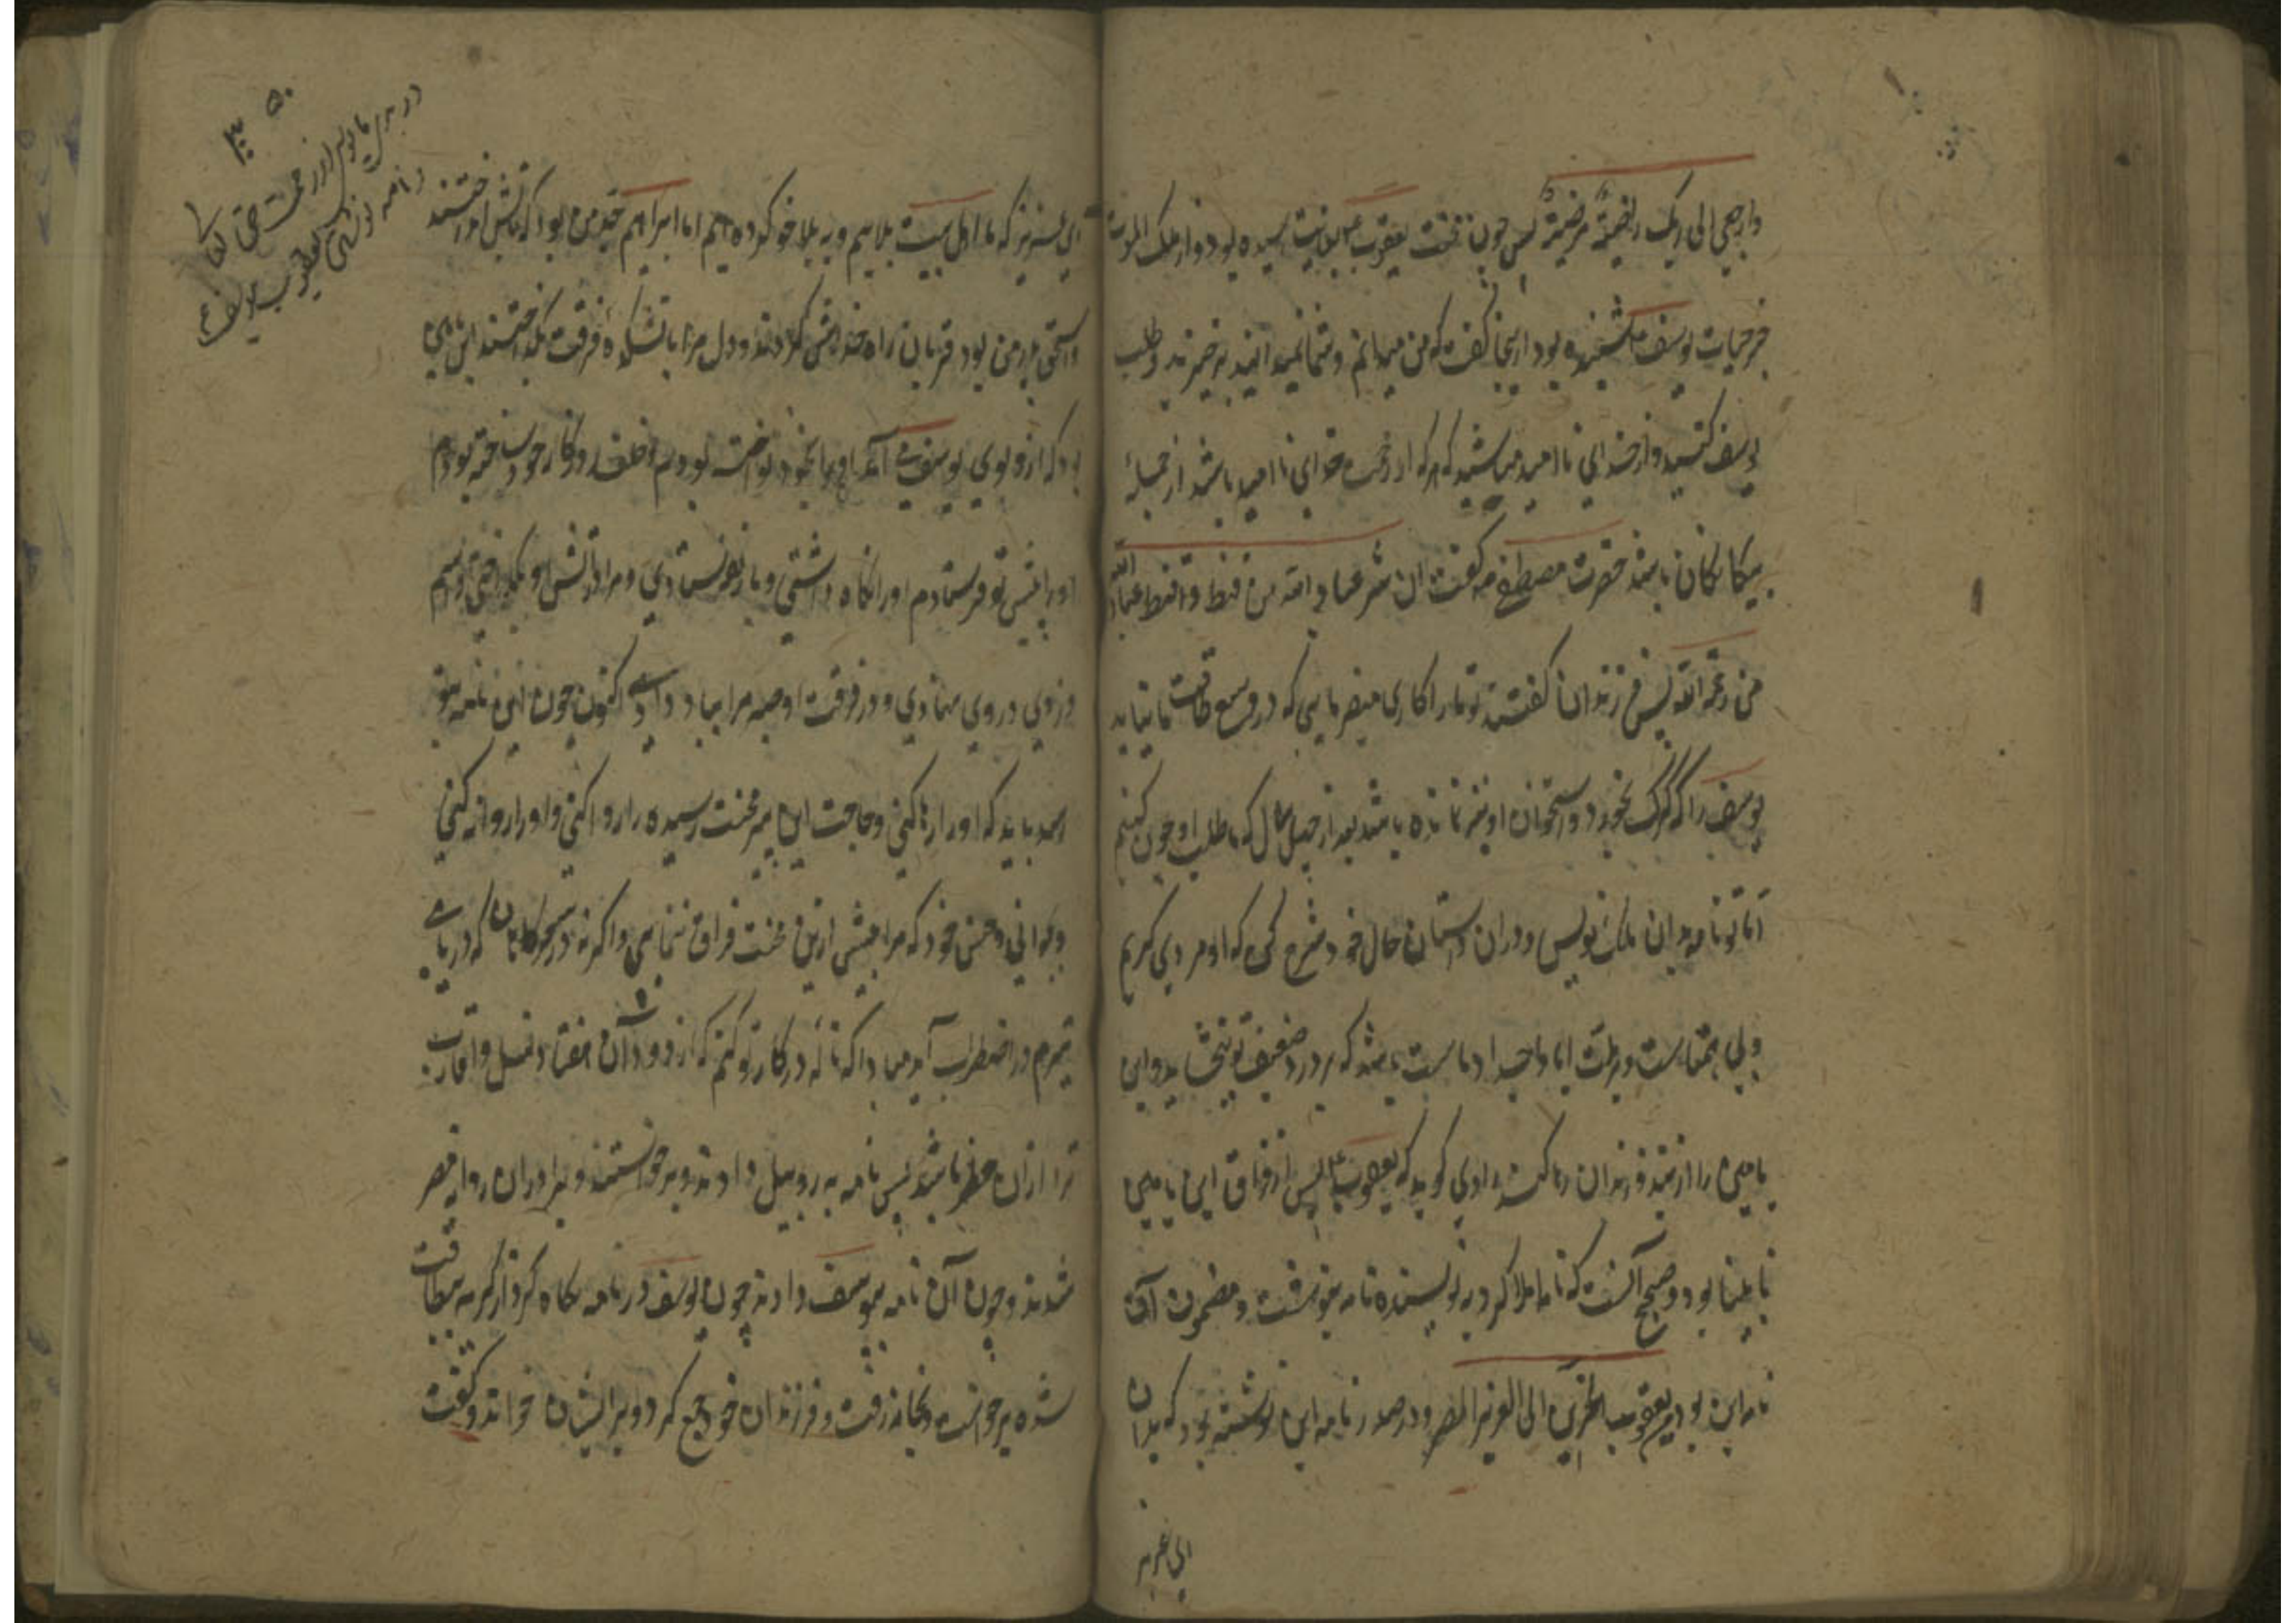 وارجعی الی ربک راضیة مرضیة پس چون نخست یعقوب بود و از ملک الموت
خبر حیات یوسف شنیده بود ازینجا گفت که من میدانم و شما نمیدانید برخیزید و طلب
یوسف کنید و از خدای ناامید مباشید که هر که از رحمت خدای ناامید باشد از جمله
بیکانکان باشد حضرت مصطفی گفت ان شر عباد الله من قنط واقنط عباد الله
من رحمة الله پس فرزندان گفتند تو ما را کاری میفرمایی که در وسع طاقت ما نیاید
یوسف را که گرگ بخورد و استخوان او نیز نمانده باشد بعد از چهل سال که ما طلب او چون کنیم
اما تو نامه بدان ملک نویس و در آن داستان حال خود شرح کن که او مردی کریم
ولی همتاست و بر ملت ابا و اجداد ماست باشد که بر درد ضعیف تو ببخشاید و ابن
یامین را از بند فرزندان رها کند راوی گوید که یعقوب پس از فراق ابن یامین
نابینا بود و صحیح آنست که نامه املا کرد به نویسنده نامه بنوشت و مضمون آن
نامه این بود من یعقوب الحزین الی العزیز المصر و در صدر نامه این نوشته بود که بدان
ای عزیز
ای عزیز که ما اهل بیت بلاییم و به بلا خو کرده ایم اما ابراهیم جد من بود که بآتش انداختند
و اسحق پدر من بود قربان راه خدایش کردند و دل مرا بآتشکده فرقت بگداختند ابن یامین
بود که ازو بوی یوسف آمد او را بخود نواخته بودم و خلف روزگار خود ساخته بودم
او را پیش تو فرستادم او را نگاه داشتی و باز نفرستادی و مرا در آتش او بگداختی و اسم
دزدی در وی نهادی و در فرقت او مرا بباد دادی اکنون چون این نامه بتو
رسد باید که او را رها کنی و حاجت این پیر محنت رسیده را روا کنی و او را روانه کنی
که مرا بیش ازین محنت فراق ننمایی و اگر نه در سحرگاهان که دریای
قهرم در اضطراب آید مبادا که ناله در کار تو کنم که از دود آن هفتاد نسل و اقارب
ترا از آن خطر باشد پس نامه به روبیل دادند و برخواستند و برادران روانه مصر
شدند و چون آن نامه بیوسف دادند چون یوسف در نامه نگاه کرد از گریه بیطاقت
شده برخواست و بخانه رفت و فرزندان خود جمع کرد و بر ایشان خواند و گفت
نامه نوشتن یعقوب بیوسف ع